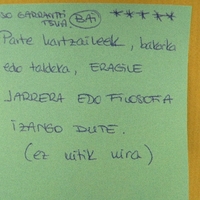 OSO GARRANTZI
TSUA BAI *****
Parte hartzaileek, bakarka
edo taldeka, ERAGILE
JARRERA EDO FILOSOFIA
IZANGO DUTE.
(ez nitik nira)